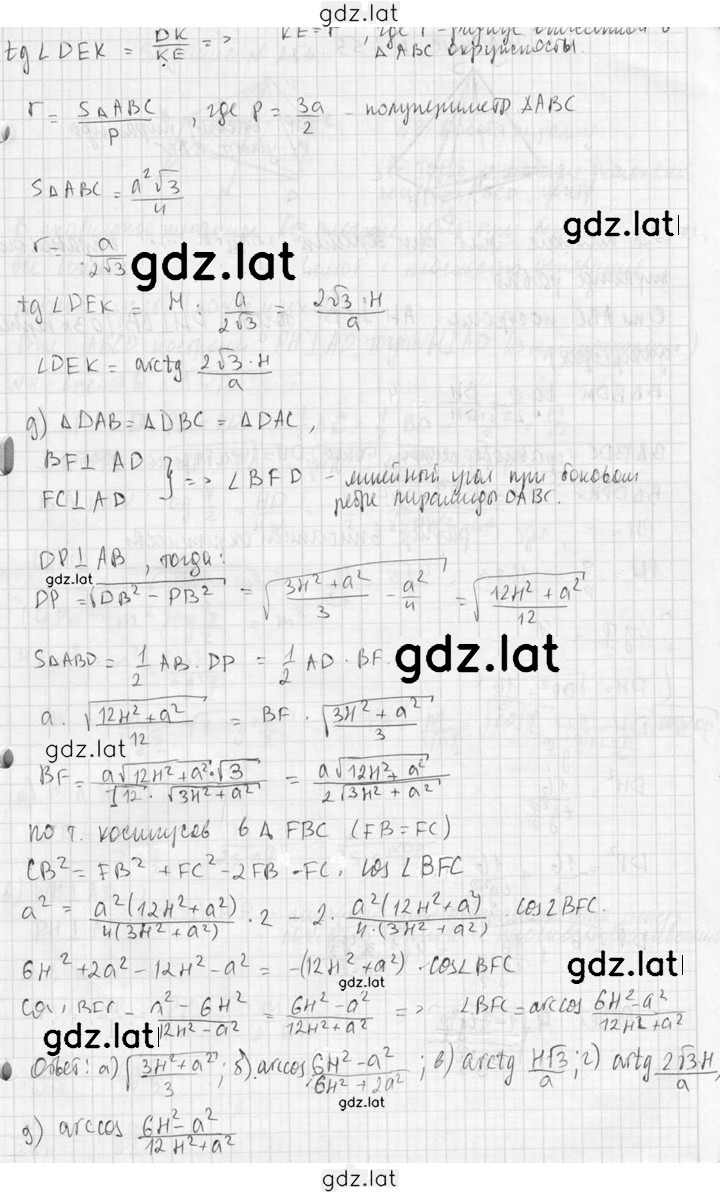 gdz.lat
tg∠DEK = DK/KE => KE = r, где r - радиус вписанной в
ΔABC окружности.
r = SΔABC/P, где p = 3a/2 - полупериметр ΔABC
SΔABC = a²√3/4
r = a/2√3
gdz.lat
gdz.lat
tg∠DEK = H : a/2√3 = 2√3·H/a
∠DEK = arctg 2√3·H/a
g) ΔDAB = ΔDBC = ΔDAC,
BF⊥AD
FC⊥AD } => ∠BFD - линейный угол при боковом
ребре пирамиды DABC.
DP⊥AB, тогда:
gdz.lat
DP = √(DB² - PB²) = √((3H² + a²)/3 - a²/4) = √((12H² + a²)/12)
SΔABD = 1/2 AB·DP = 1/2 AD·BF.
gdz.lat
a·√((12H² + a²)/12) = BF·√((3H² + a²)/3)
gdz.lat
BF = a√(12H² + a²)·√3/(√12·√(3H² + a²)) = a√(12H² + a²)/(2√(3H² + a²))
по т. косинусов в Δ FBC (FB = FC)
CB² = FB² + FC² - 2FB·FC·cos∠BFC
a² = a²(12H² + a²)/4(3H² + a²)·2 - 2·a²(12H² + a²)/4·(3H² + a²)·cos∠BFC.
6H² + 2a² - 12H² - a² = -(12H² + a²)·cos∠BFC
gdz.lat
cos∠BFC = (a² - 6H²)/(12H² - a²) = (6H² - a²)/(12H² + a²) => ∠BFC = arccos (6H² - a²)/(12H² + a²)
gdz.lat
Ответ: а) √((3H² + a²)/3); б) arccos (6H² - a²)/(6H² + 2a²); в) arctg H√3/a; г) artg 2√3H/a,
gdz.lat
g) arccos (6H² - a²)/(12H² + a²)
gdz.lat